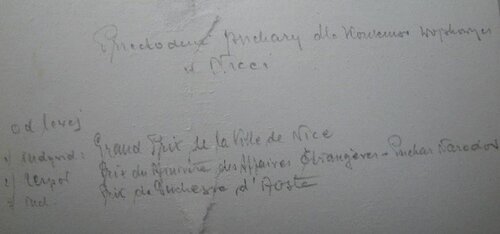 puchary dla
w Nicei
od lewej
1) indywid: Grand Prix de la Ville de Nice
2) zespoł Prix du Ministre des Affaires Étrangères - Puchar Narodów
3) ind. Prix de Duchesse d'Aoste